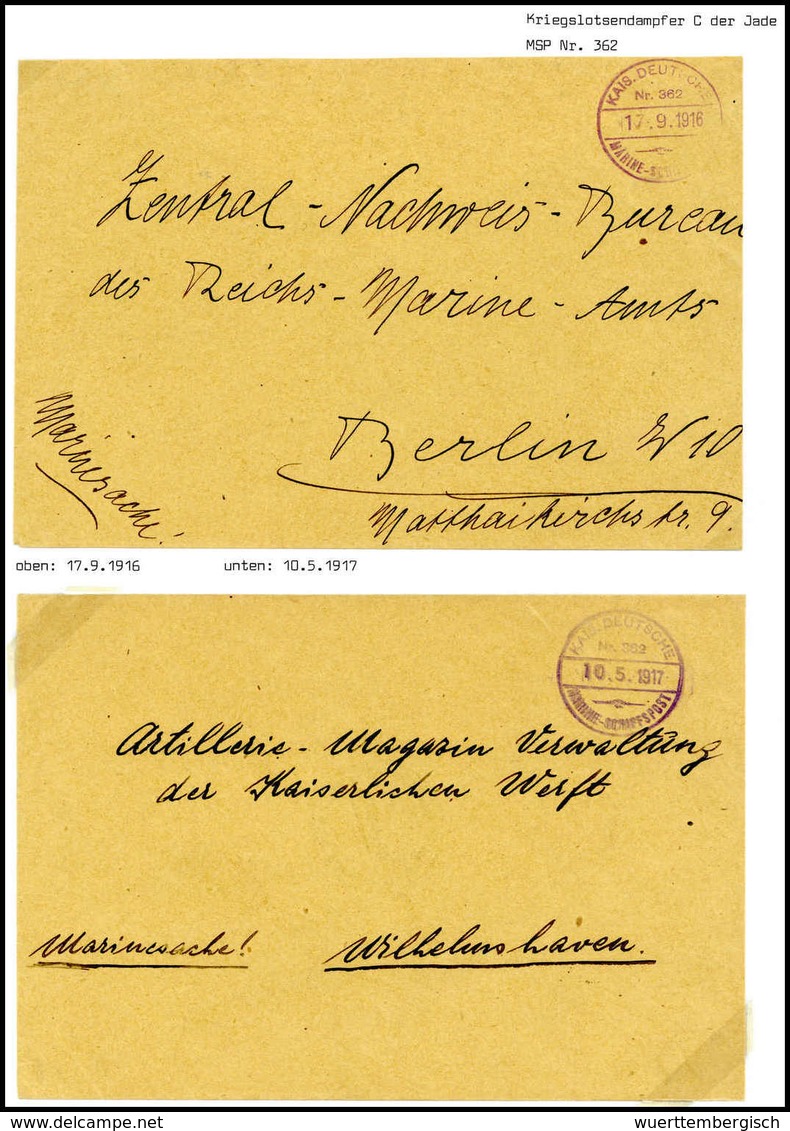 Kriegslotsendampfer C der Jade
MSP Nr. 362
KAIS. DEUTSCHE
Nr. 362
17.9.1916
Zentral-Nachweis-Bureau
des Reichs-Marine-Amts
Marinesache!
Berlin W10
Matthaikirchstr. 9.
oben: 17.9.1916 unten: 10.5.1917
KAIS. DEUTSCHE
Nr. 362
10.5.1917
MARINE-SCHIFFSPOST
Artillerie-Magazin Verwaltung
der Kaiserlichen Werft
Marinesache! Wilhelmshaven.
wuerttembergisch